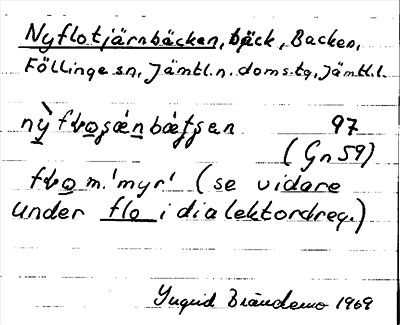 Nyflotjärnbäcken, bäck, Backen,
Föllinge sn, Jämtl. n. doms.tg, Jämtl. l.
97
(Gn 59)
m. 'myr' (se vidare
under flo i dialektordreg.)
Ingrid Brändemo 1969